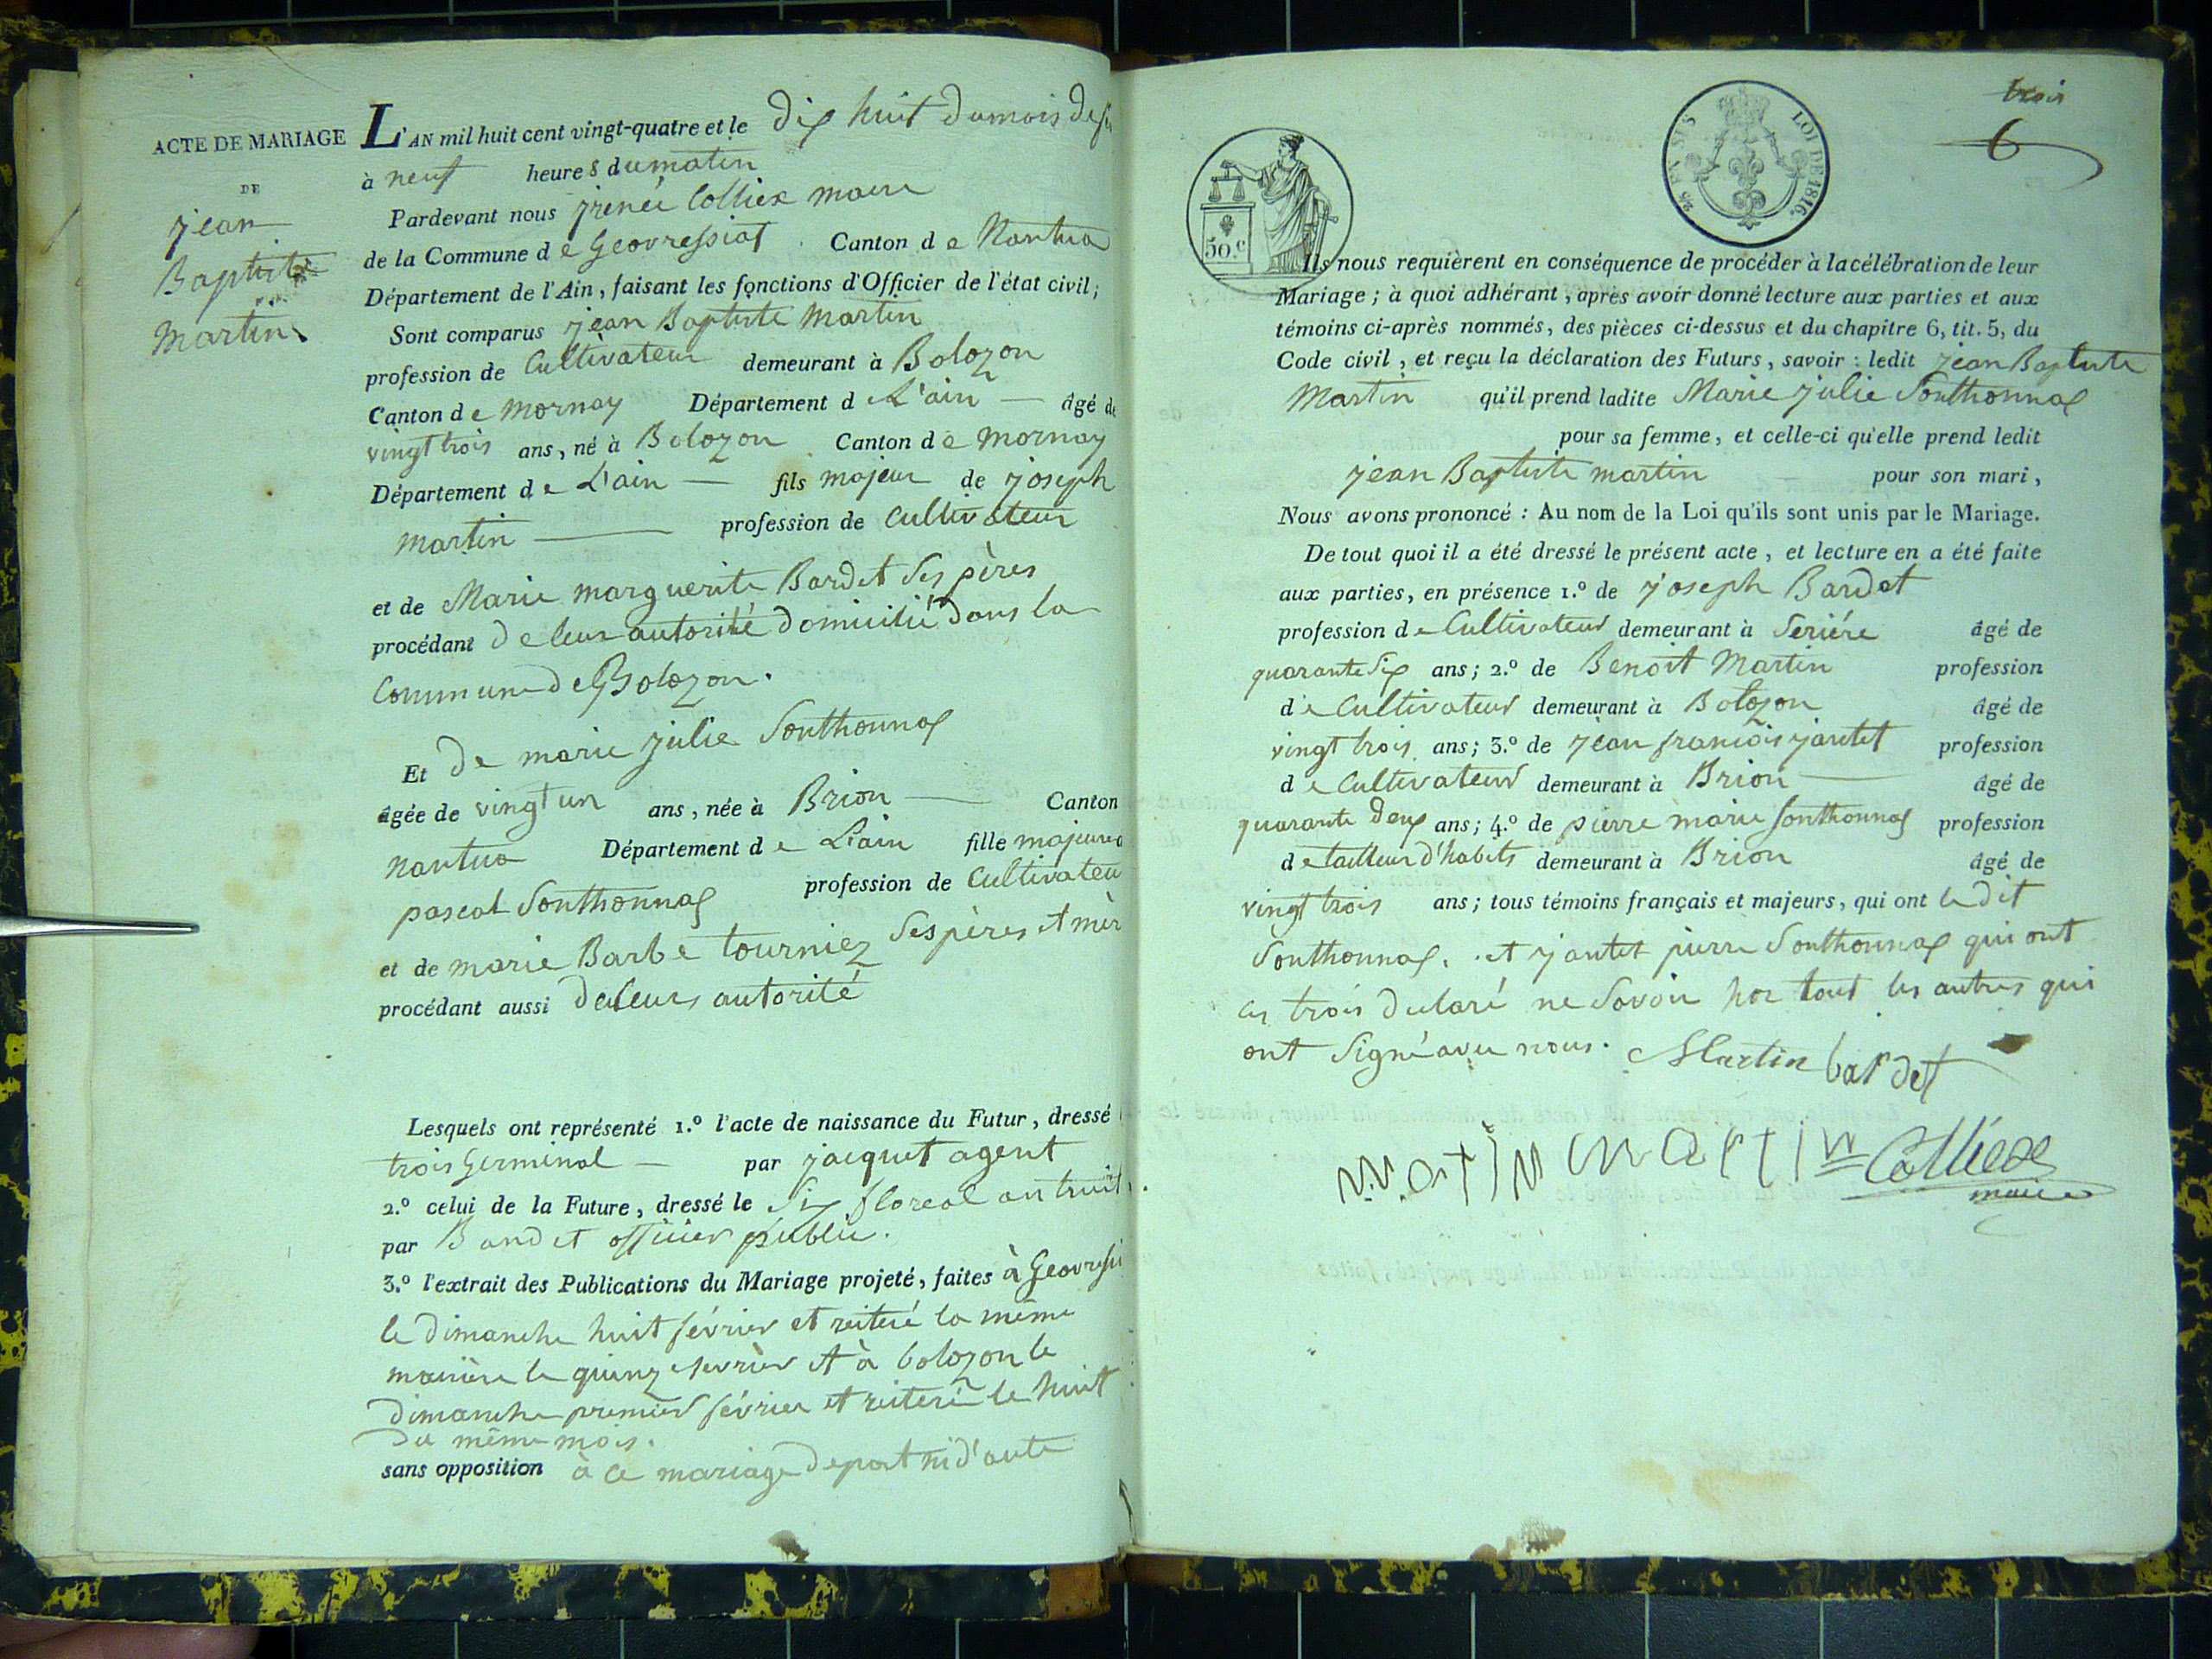 ACTE DE MARIAGE
DE
jean
Baptiste
martin
L'AN mil huit cent vingt-quatre et le dix huit du mois de
à neuf heures du matin
Pardevant nous jrenée Colliex maire
de la Commune de Geovressiat Canton de Nantua
Département de l'Ain, faisant les fonctions d'Officier de l'état civil;
Sont comparus jean Baptiste Martin
profession de Cultivateur demeurant à Bolozon
Canton de mornay Département de L'ain âgé de
vingt trois ans, né à Bolozon Canton de mornay
Département de L'ain fils majeur de joseph
martin profession de Cultivateur
et de Marie marguerite Bardet ses pères
procédant de leur autorité domicilié dans la
Commune de Bolozon.
Et De marie julie Sonthonnax
âgée de vingt un ans, née à Brion Canton
nantua Département de L'ain fille majeure
pascal Sonthonnax profession de Cultivateu
et de marie Barbe tourniez ses pères et mèr
procédant aussi de leurs autorité
Lesquels ont représenté 1.º l'acte de naissance du Futur, dressé
trois Germinal par jacquet agent
2.º celui de la Future, dressé le Six floreal an huit
par Bardet officier public.
3.º l'extrait des Publications du Mariage projeté, faites à Geovressi
le dimanche huit février et reiteré la même
manière le quinze fevrier et à bolozon le
dimanche premier février et reiteré le huit
du même mois.
sans opposition à ce mariage depart ni d'autre
trois
6
50.c
25 EN SUS
LOI DE 1816.
Ils nous requièrent en conséquence de procéder à la célébration de leur
Mariage; à quoi adhérant, après avoir donné lecture aux parties et aux
témoins ci-après nommés, des pièces ci-dessus et du chapitre 6, tit. 5, du
Code civil, et reçu la déclaration des Futurs, savoir: ledit jean Baptiste
Martin qu'il prend ladite Marie julie Sonthonnax
pour sa femme, et celle-ci qu'elle prend ledit
jean Baptiste martin pour son mari,
Nous avons prononcé: Au nom de la Loi qu'ils sont unis par le Mariage.
De tout quoi il a été dressé le présent acte, et lecture en a été faite
aux parties, en présence 1.º de joseph Bardet
profession de Cultivateur demeurant à Seriére âgé de
quarante Six ans; 2.º de Benoit Martin profession
de Cultivateur demeurant à Bolozon âgé de
vingt trois ans; 3.º de jean francois jantet profession
de Cultivateur demeurant à Brion âgé de
quarante deux ans; 4.º de pierre marie Sonthonnax profession
de tailleur d'habits demeurant à Brion âgé de
vingt trois ans; tous témoins français et majeurs, qui ont le dit
Sonthonnax. et jantet pierre Sonthonnax qui ont
les trois declaré ne Savoir tout les autres qui
ont Signé avec nous. Martin bardet
martin martin Colliex
maire